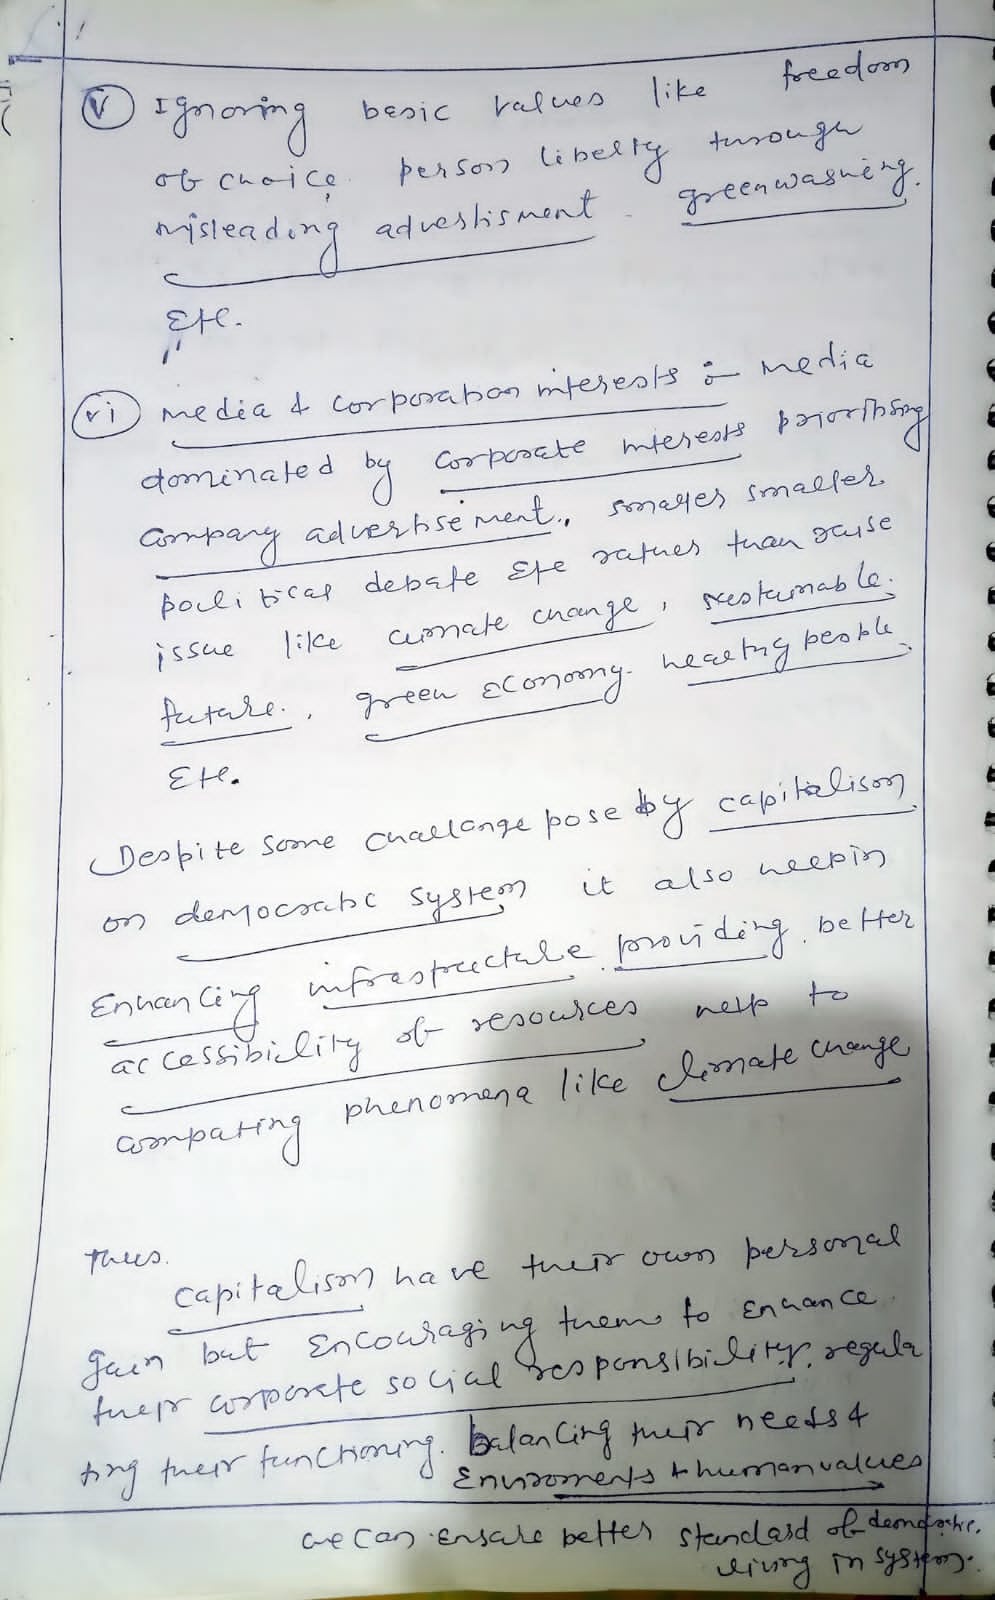 (v) Ignoring basic values like freedom
of choice. person liberty through
misleading advertisment. greenwashing.
Etc.
(vi) media & corporation interests :- media
dominated by corporate interests prioritising
company advertisement., smaller smaller
political debate Etc rather than raise
issue like climate change, sustainable.
future., green economy. healthy people.
Etc.
Despite some challange pose by capitalism.
on democratic system it also help in
Enhancing infrastructure. providing. better
accessibility of resources help to
compating phenomena like climate change
Thus.
capitalism have their own personal
gain but Encouraging them to enhance
their corporate social responsibility, regula
ting their functioning. balancing their needs &
Enviroments & human values
we can ensure better standard of democratic.
living in system.